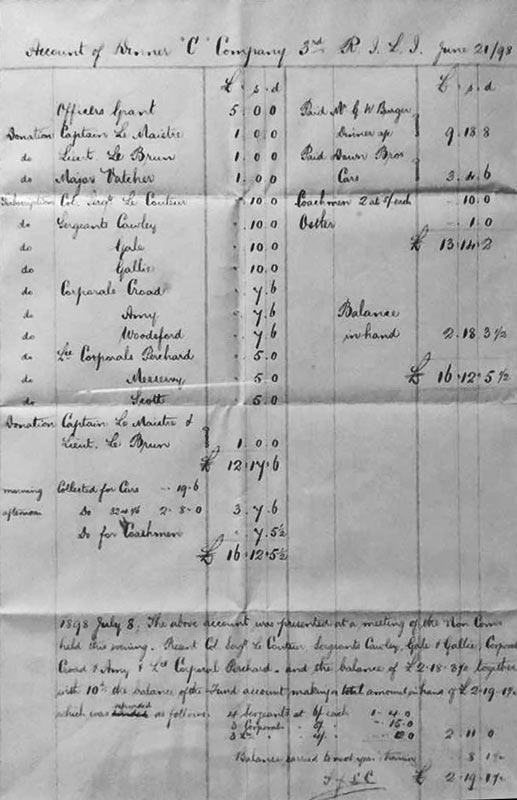 Account of Dinner "C" Company 3rd R. J. L. I. June 21/98
£ s. d
Officers Grant 5. 0. 0
Donation Captain Le Maistre 1. 0. 0
do Lieut. Le Brun 1. 0. 0
do Major Vatcher 1. 0. 0
Subscription Col. Sergt. Le Couteur . 10. 0
do Sergeants Cawley . 10. 0
do Gale . 10. 0
do Gallie . 10. 0
do Corporals Croad . 7. 6
do Amy . 7. 6
do Woodsford . 7. 6
do Lce Corporals Perchard . 5. 0
do Messervy . 5. 0
do Scott . 5. 0
Donation Captain Le Maistre &
Lieut. Le Brun 1. 0. 0
£ 12. 17. 6
morning Collected for Cars - 19. 6
afternoon Do 32 at 1/6 2. 8. 0 3. 7. 6
Do for Coachmen . 7. 5½
£ 16. 12. 5½
£ s. d
Paid Mr G. W. Burger
Dinner 9. 18. 8
Paid Down Bros
Cars 3. 4. 6
Coachmen 2 at 5/ each . 10. 0
Ostler . 1. 0
£ 13. 14. 2
Balance
in hand 2. 18. 3½
£ 16. 12. 5½
1898 July 8. The above account was presented at a meeting of the Non Coms
held this evening. Present Col. Sergt. Le Couteur Sergeants Cawley, Gale & Gallie, Corporals
Croad & Amy & Lce Corporal Perchard. and the balance of £2-18-3½ together
with 10½ the balance of the Fund account making a total amount in hand of £2.19.1½
which was refunded as follows. 4 Sergeants at 6/ each 1-4.0
3 Corporals 5/ - 15.0
3 L. 4/ - 12.0 2. 11. 0
Balance carried to next year training . 8. 1½
£ 2. 19. 1½